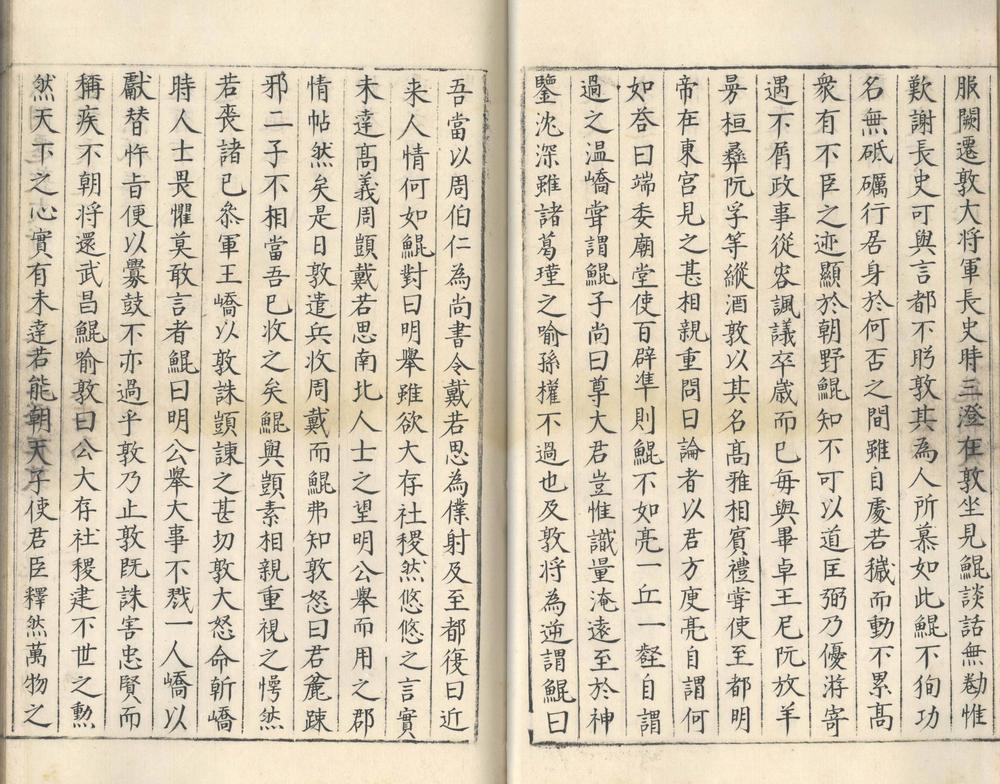 服闋遷敦大将軍長史時王澄在敦坐見鯤談話無勌惟
歎謝長史可與言都不眄敦其為人所慕如此鯤不徇功
名無砥礪行居身於何否之間雖自處若穢而動不累高
衆有不臣之迹顯於朝野鯤知不可以道匡弼乃優游寄
遇不屑政事從容諷議卒歲而已毎與畢卓王尼阮放羊
曼桓彝阮孚等縱酒敦以其名髙雅相賓禮甞使至都明
帝在東宮見之甚相親重問曰論者以君方庾亮自謂何
如荅曰端委廟堂使百辟準則鯤不如亮一丘一壑自謂
過之温嶠甞謂鯤子尚曰尊大君豈惟識量淹遠至於神
鑒沈深雖諸葛瑾之喻孫權不過也及敦将為逆謂鯤曰
吾當以周伯仁為尚書令戴若思為僕射及至都復曰近
来人情何如鯤對曰明舉雖欲大存社稷然悠悠之言實
未達髙義周顗戴若思南北人士之望明公舉而用之郡
情帖然矣是日敦遣兵收周戴而鯤弗知敦怒曰君麄踈
邪二子不相當吾已收之矣鯤與顗素相親重視之愕然
若喪諸已叅軍王嶠以敦誅顗諌之甚切敦大怒命斬嶠
時人士畏懼莫敢言者鯤曰明公舉大事不戮一人嶠以
獻替忤㫖便以釁鼓不亦過乎敦乃止敦既誅害忠賢而
稱疾不朝将還武昌鯤喻敦曰公大存社稷建不世之勲
然天下之心實有未達若能朝天子使君臣釋然萬物之